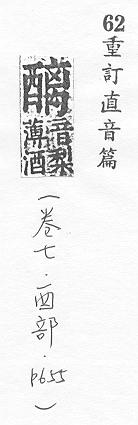 62重訂直音篇
醨音梨薄酒
(卷七·酉部·p655)